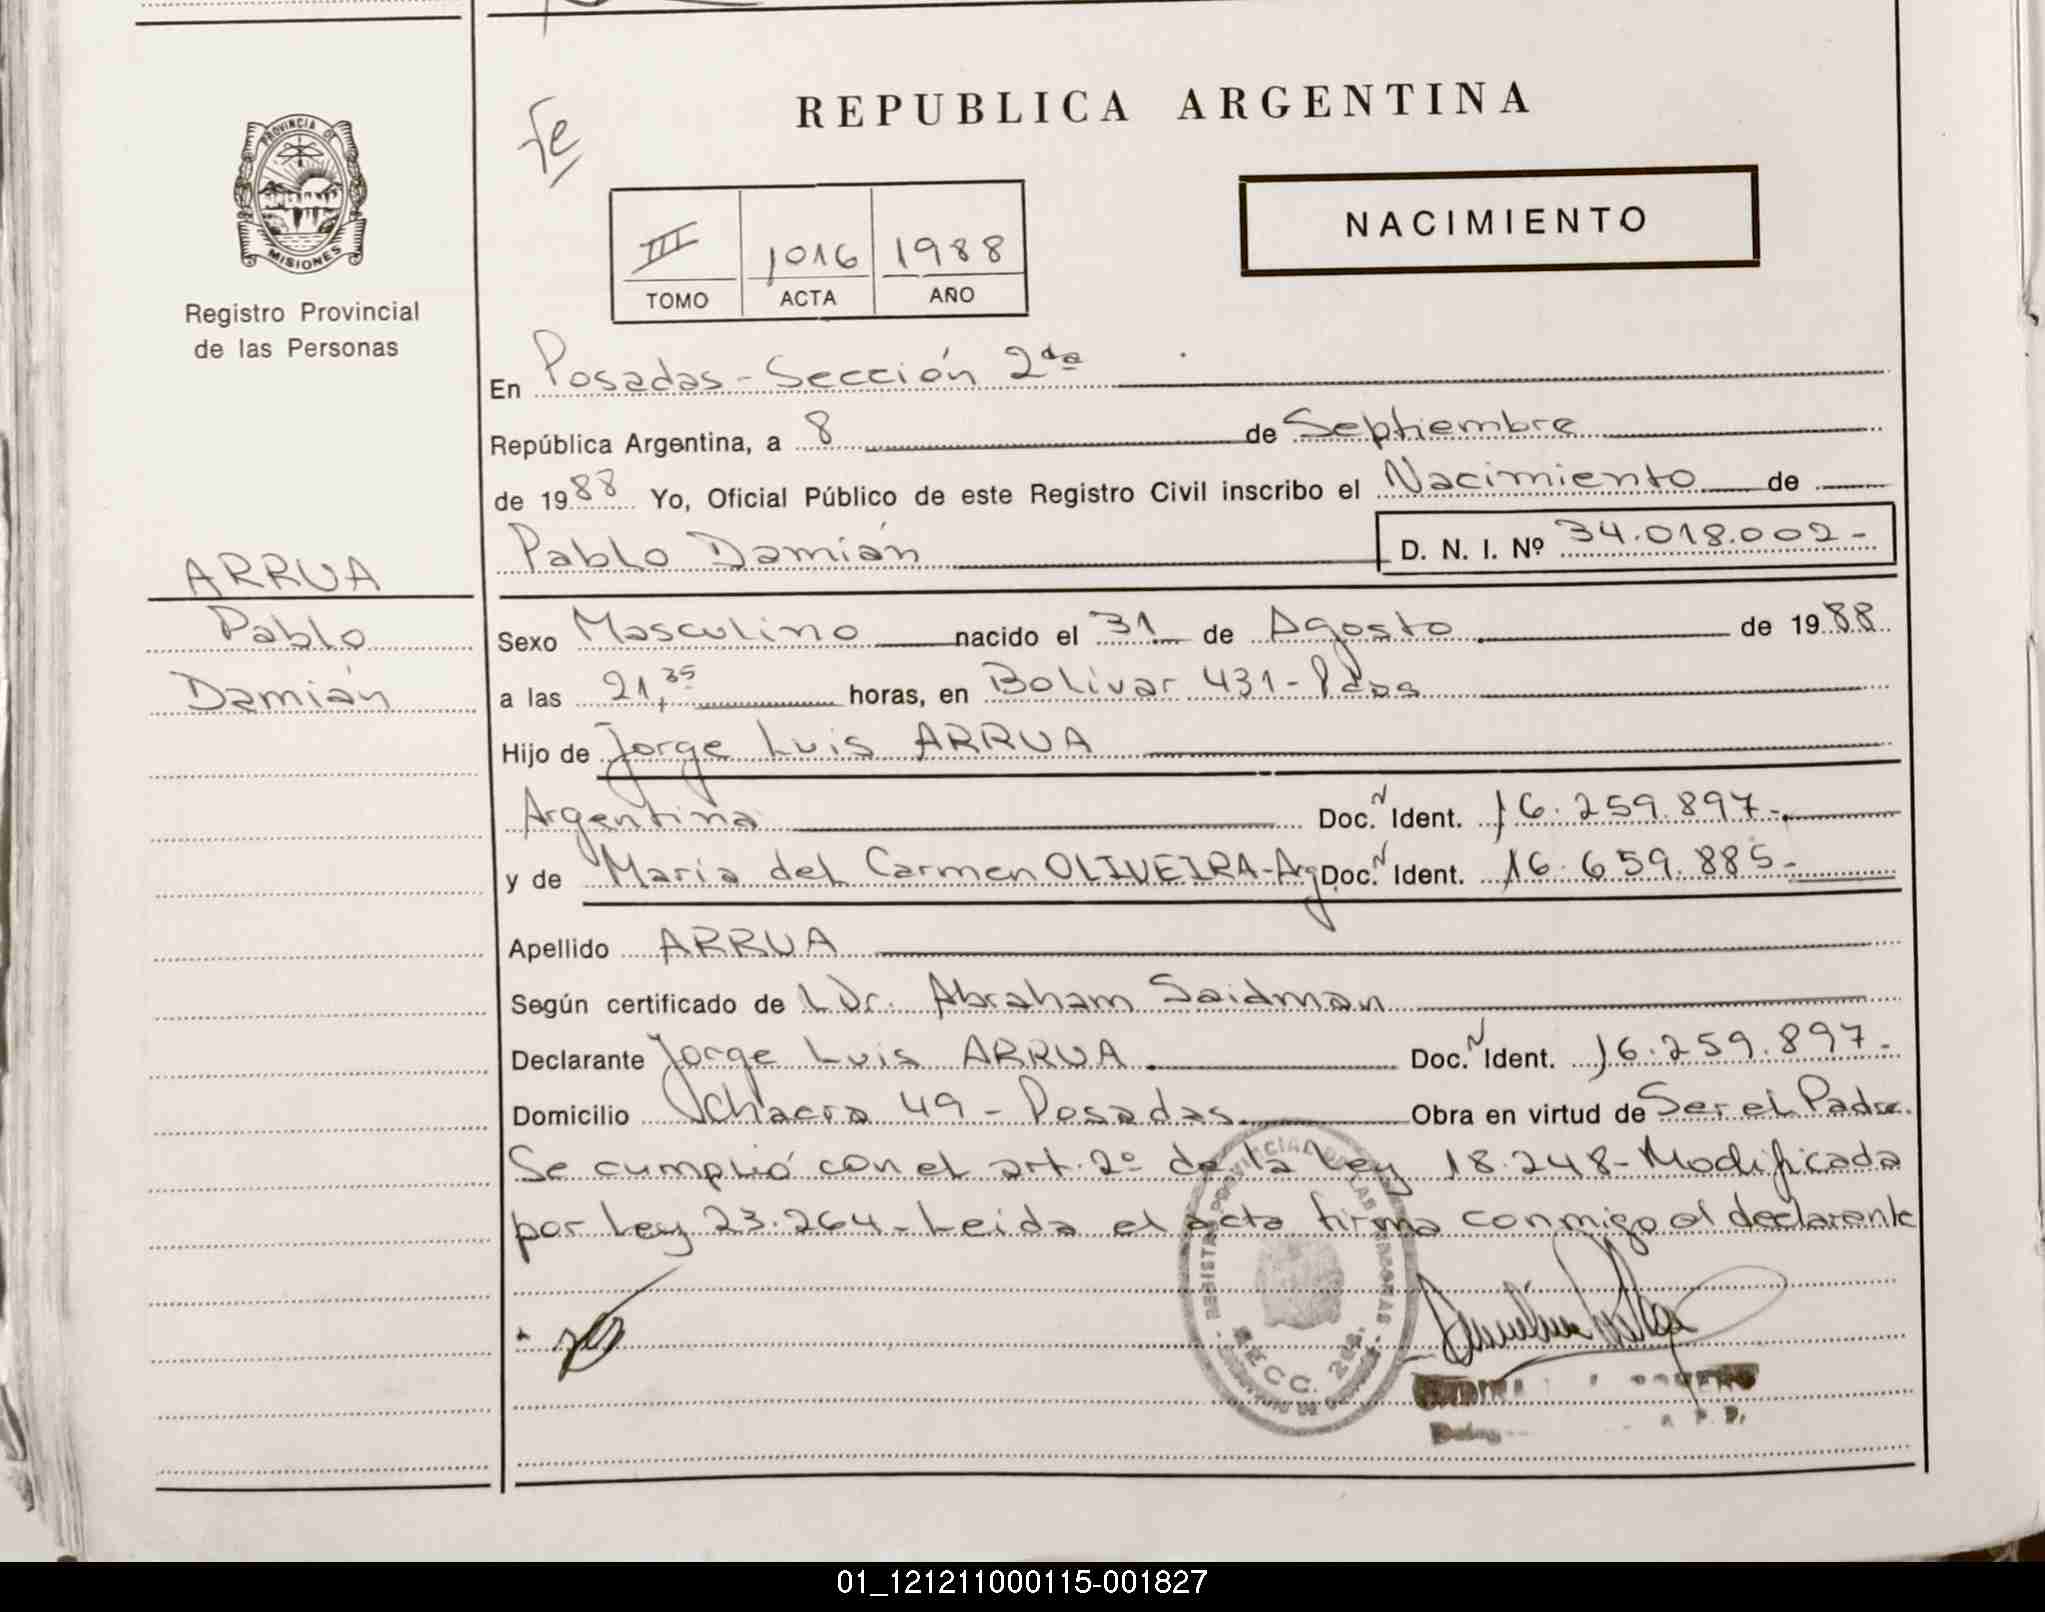 REPUBLICA ARGENTINA
Fe
PROVINCIA DE
MISIONES
Registro Provincial
de las Personas
NACIMIENTO
III 1016 1988
TOMO ACTA AÑO
En Posadas - Sección 2da
República Argentina, a 8 de Septiembre
de 1988 Yo, Oficial Público de este Registro Civil inscribo el Nacimiento de
Pablo Damián D. N. I. Nº 34.018.002-
ARRUA
Pablo
Damián
Sexo Masculino nacido el 31 de Agosto de 1988
a las 21,35 horas, en Bolívar 431 - Pdas
Hijo de Jorge Luis ARRUA
Argentina Doc. N Ident. 16.259.897-
y de María del Carmen OLIVEIRA - Arg Doc. N Ident. 16.659.885-
Apellido ARRUA
Según certificado de l Dr. Abraham Saidman
Declarante Jorge Luis ARRUA Doc. N Ident. 16.259.897-
Domicilio Chacra 49 - Posadas Obra en virtud de Ser el Padre.
Se cumplió con el art. 2º de la Ley 18.248 - Modificada
por Ley 23.264 - Leida el acta firma conmigo el declarante
SECC. 2da.
01_121211000115-001827